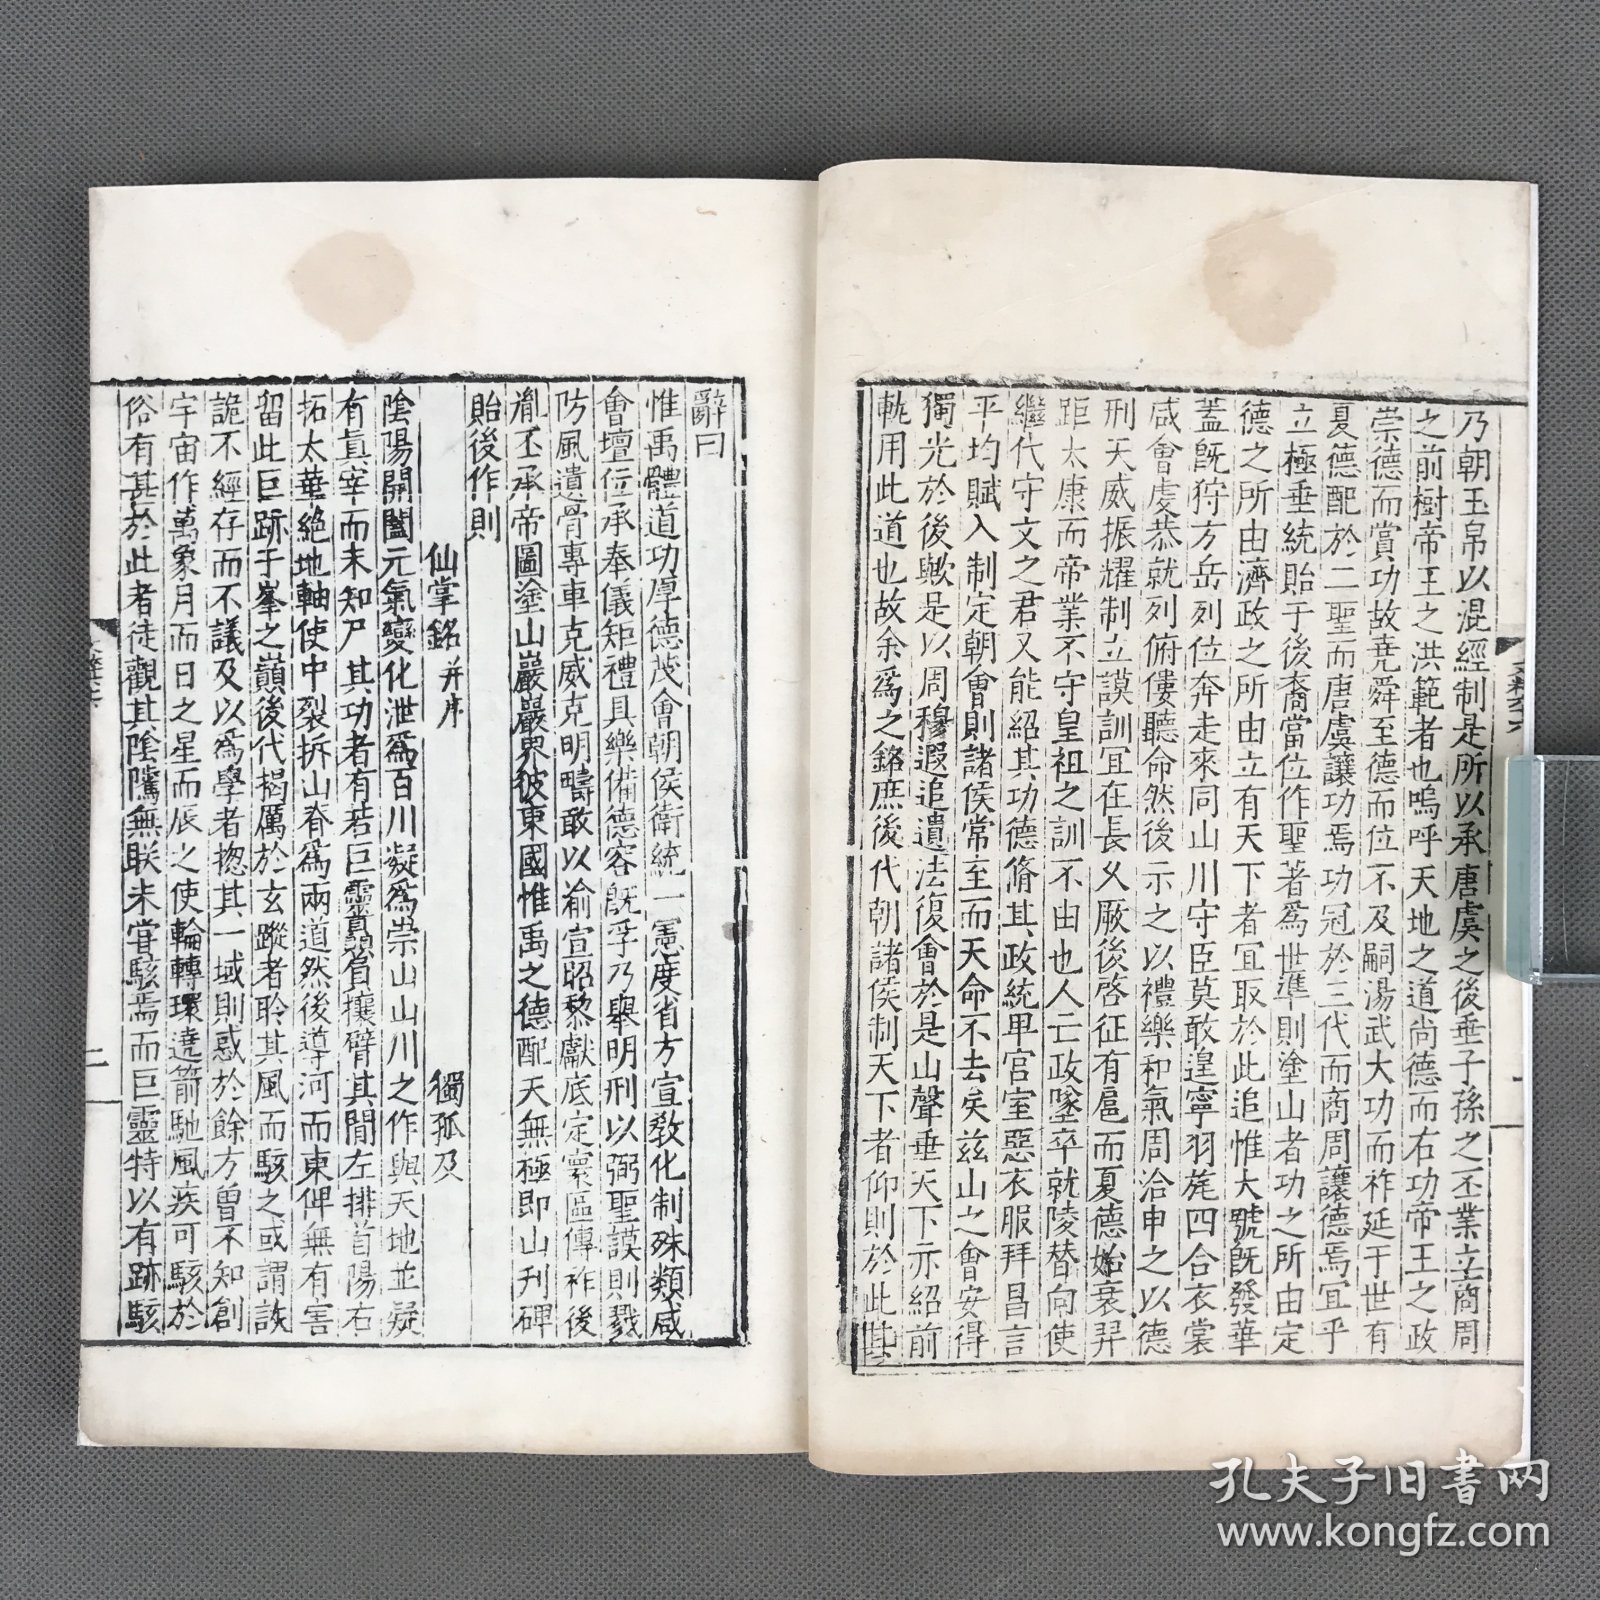 乃朝玉帛以混經制是所以承唐虞之後垂子孫之丕業立商周
之前樹帝王之洪範者也嗚呼天地之道尚德而右功帝王之政
崇德而賞功故堯舜至德而位不及嗣湯武大功而祚延于世有
夏德配於二聖而唐虞讓功焉功冠於三代而商周讓德焉宜乎
立極垂統貽于後裔當位作聖著爲世準則塗山者功之所由定
德之所由濟政之所由立有天下者宜取於此追惟大號旣發華
蓋旣狩方岳列位奔走來同山川守臣莫敢遑寧羽旄四合衣裳
咸會虔恭就列俯僂聽命然後示之以禮樂和氣周洽申之以德
刑天威振耀制立謨訓宜在長久厥後啓征有扈而夏德始衰羿
距太康而帝業不守皇祖之訓不由也人亡政墜卒就陵替向使
繼代守文之君又能紹其功德脩其政統卑宮室惡衣服拜昌言
平均賦入制定朝會則諸侯常至而天命不去矣兹山之會安得
獨光於後歟是以周穆遐追遺法復會於是山聲垂天下亦紹前
軌用此道也故余爲之銘庶後代朝諸侯制天下者仰則於此其
辭曰
惟禹體道功厚德茂會朝侯衛統一憲度省方宣教化制殊類咸
會壇位承奉儀矩禮具樂備德容旣孚乃舉明刑以弼聖謨則戮
防風遺骨專車克威克明疇敢以渝宣昭黎獻底定寰區傳祚後
胤丕承帝圖塗山巖巖界彼東國惟禹之德配天無極即山刋碑
貽後作則
仙掌銘并序 獨孤及
陰陽開闔元氣變化泄爲百川凝爲崇山山川之作與天地並凝
有眞宰而未知尸其功者有若巨靈贔屓攘臂其間左排首陽右
拓太華絶地軸使中裂拆山脊爲兩道然後導河而東俾無有害
留此巨跡于峯之巔後代揭厲於玄蹤者聆其風而駭之或謂詼
詭不經存而不議及以爲學者揔其一域則惑於餘方曾不知創
宇宙作萬象月而日之星而辰之使輪轉環遶箭馳風疾可駭於
俗有甚於此者徒觀其陰騭無朕未嘗駭焉而巨靈特以有跡駭
二
孔夫子旧书网
www.kongfz.com